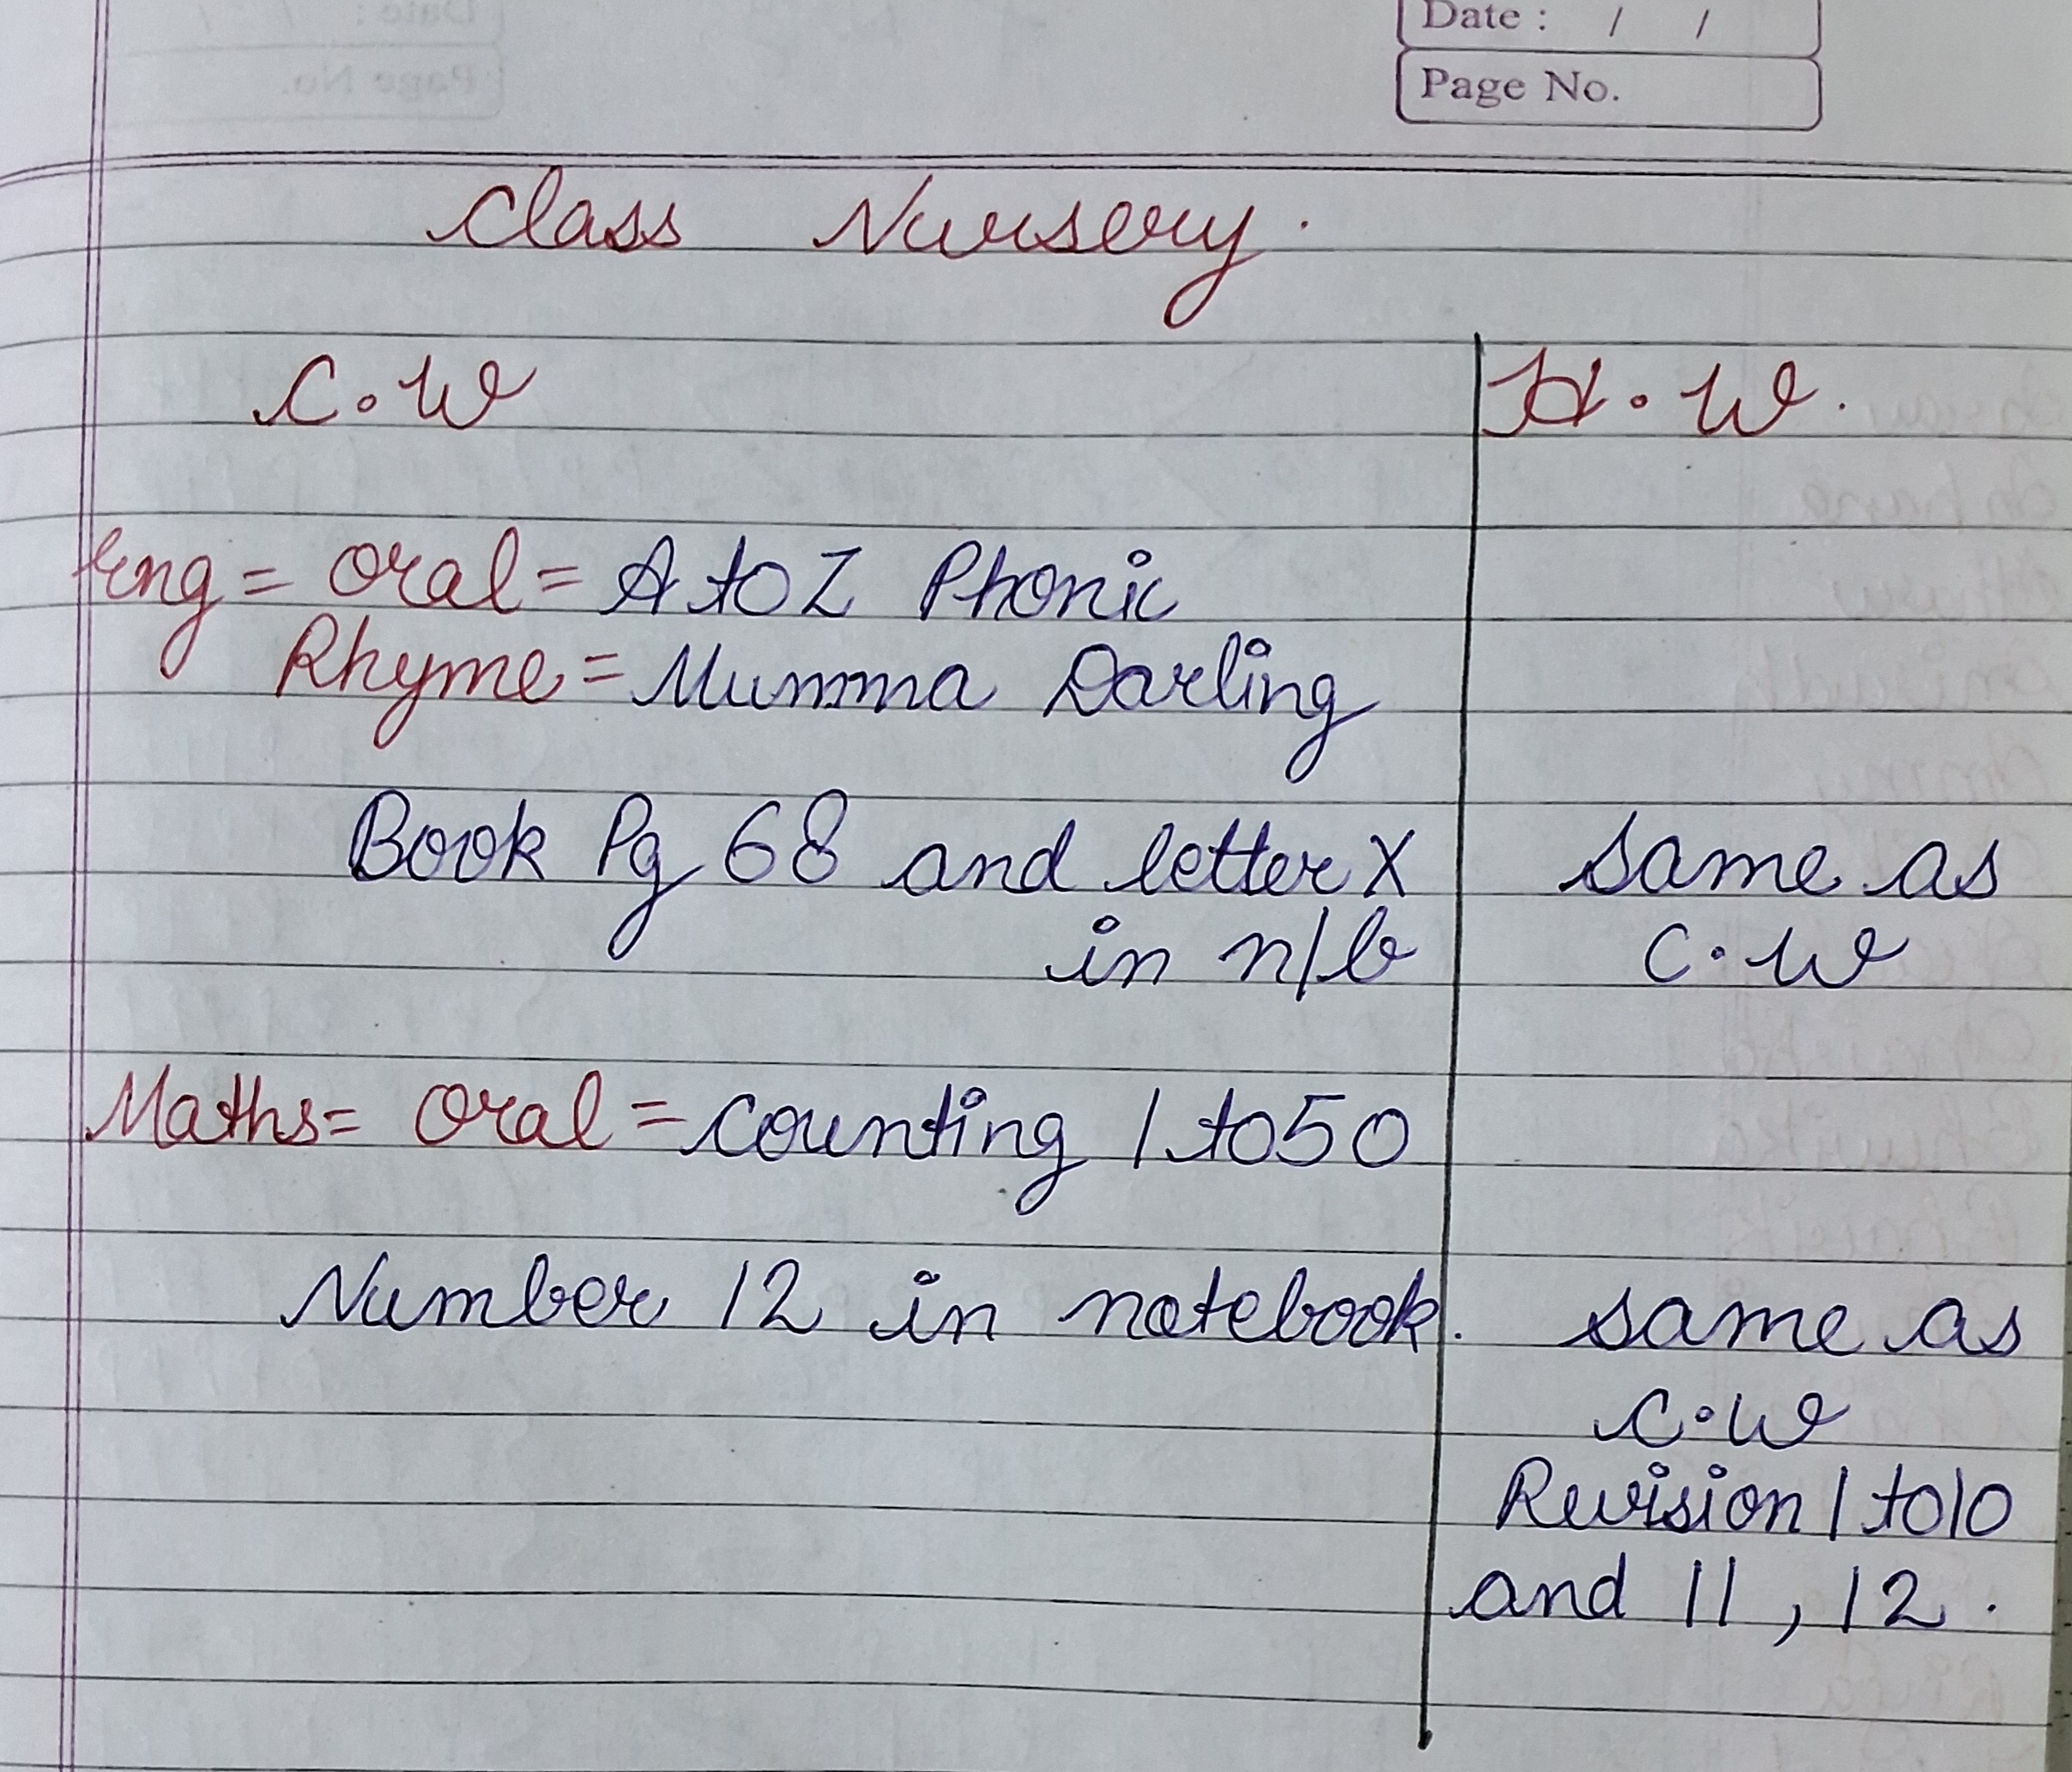 Date : / /
Page No.
Class Nursery.
C.W
H.W.
Eng = Oral = A to Z Phonic
Rhyme = Mumma Darling
Book Pg 68 and letter X
in n/b
same as
C.W
Maths = Oral = counting 1 to 50
Number 12 in notebook.
same as
C.W
Revision 1 to 10
and 11, 12.